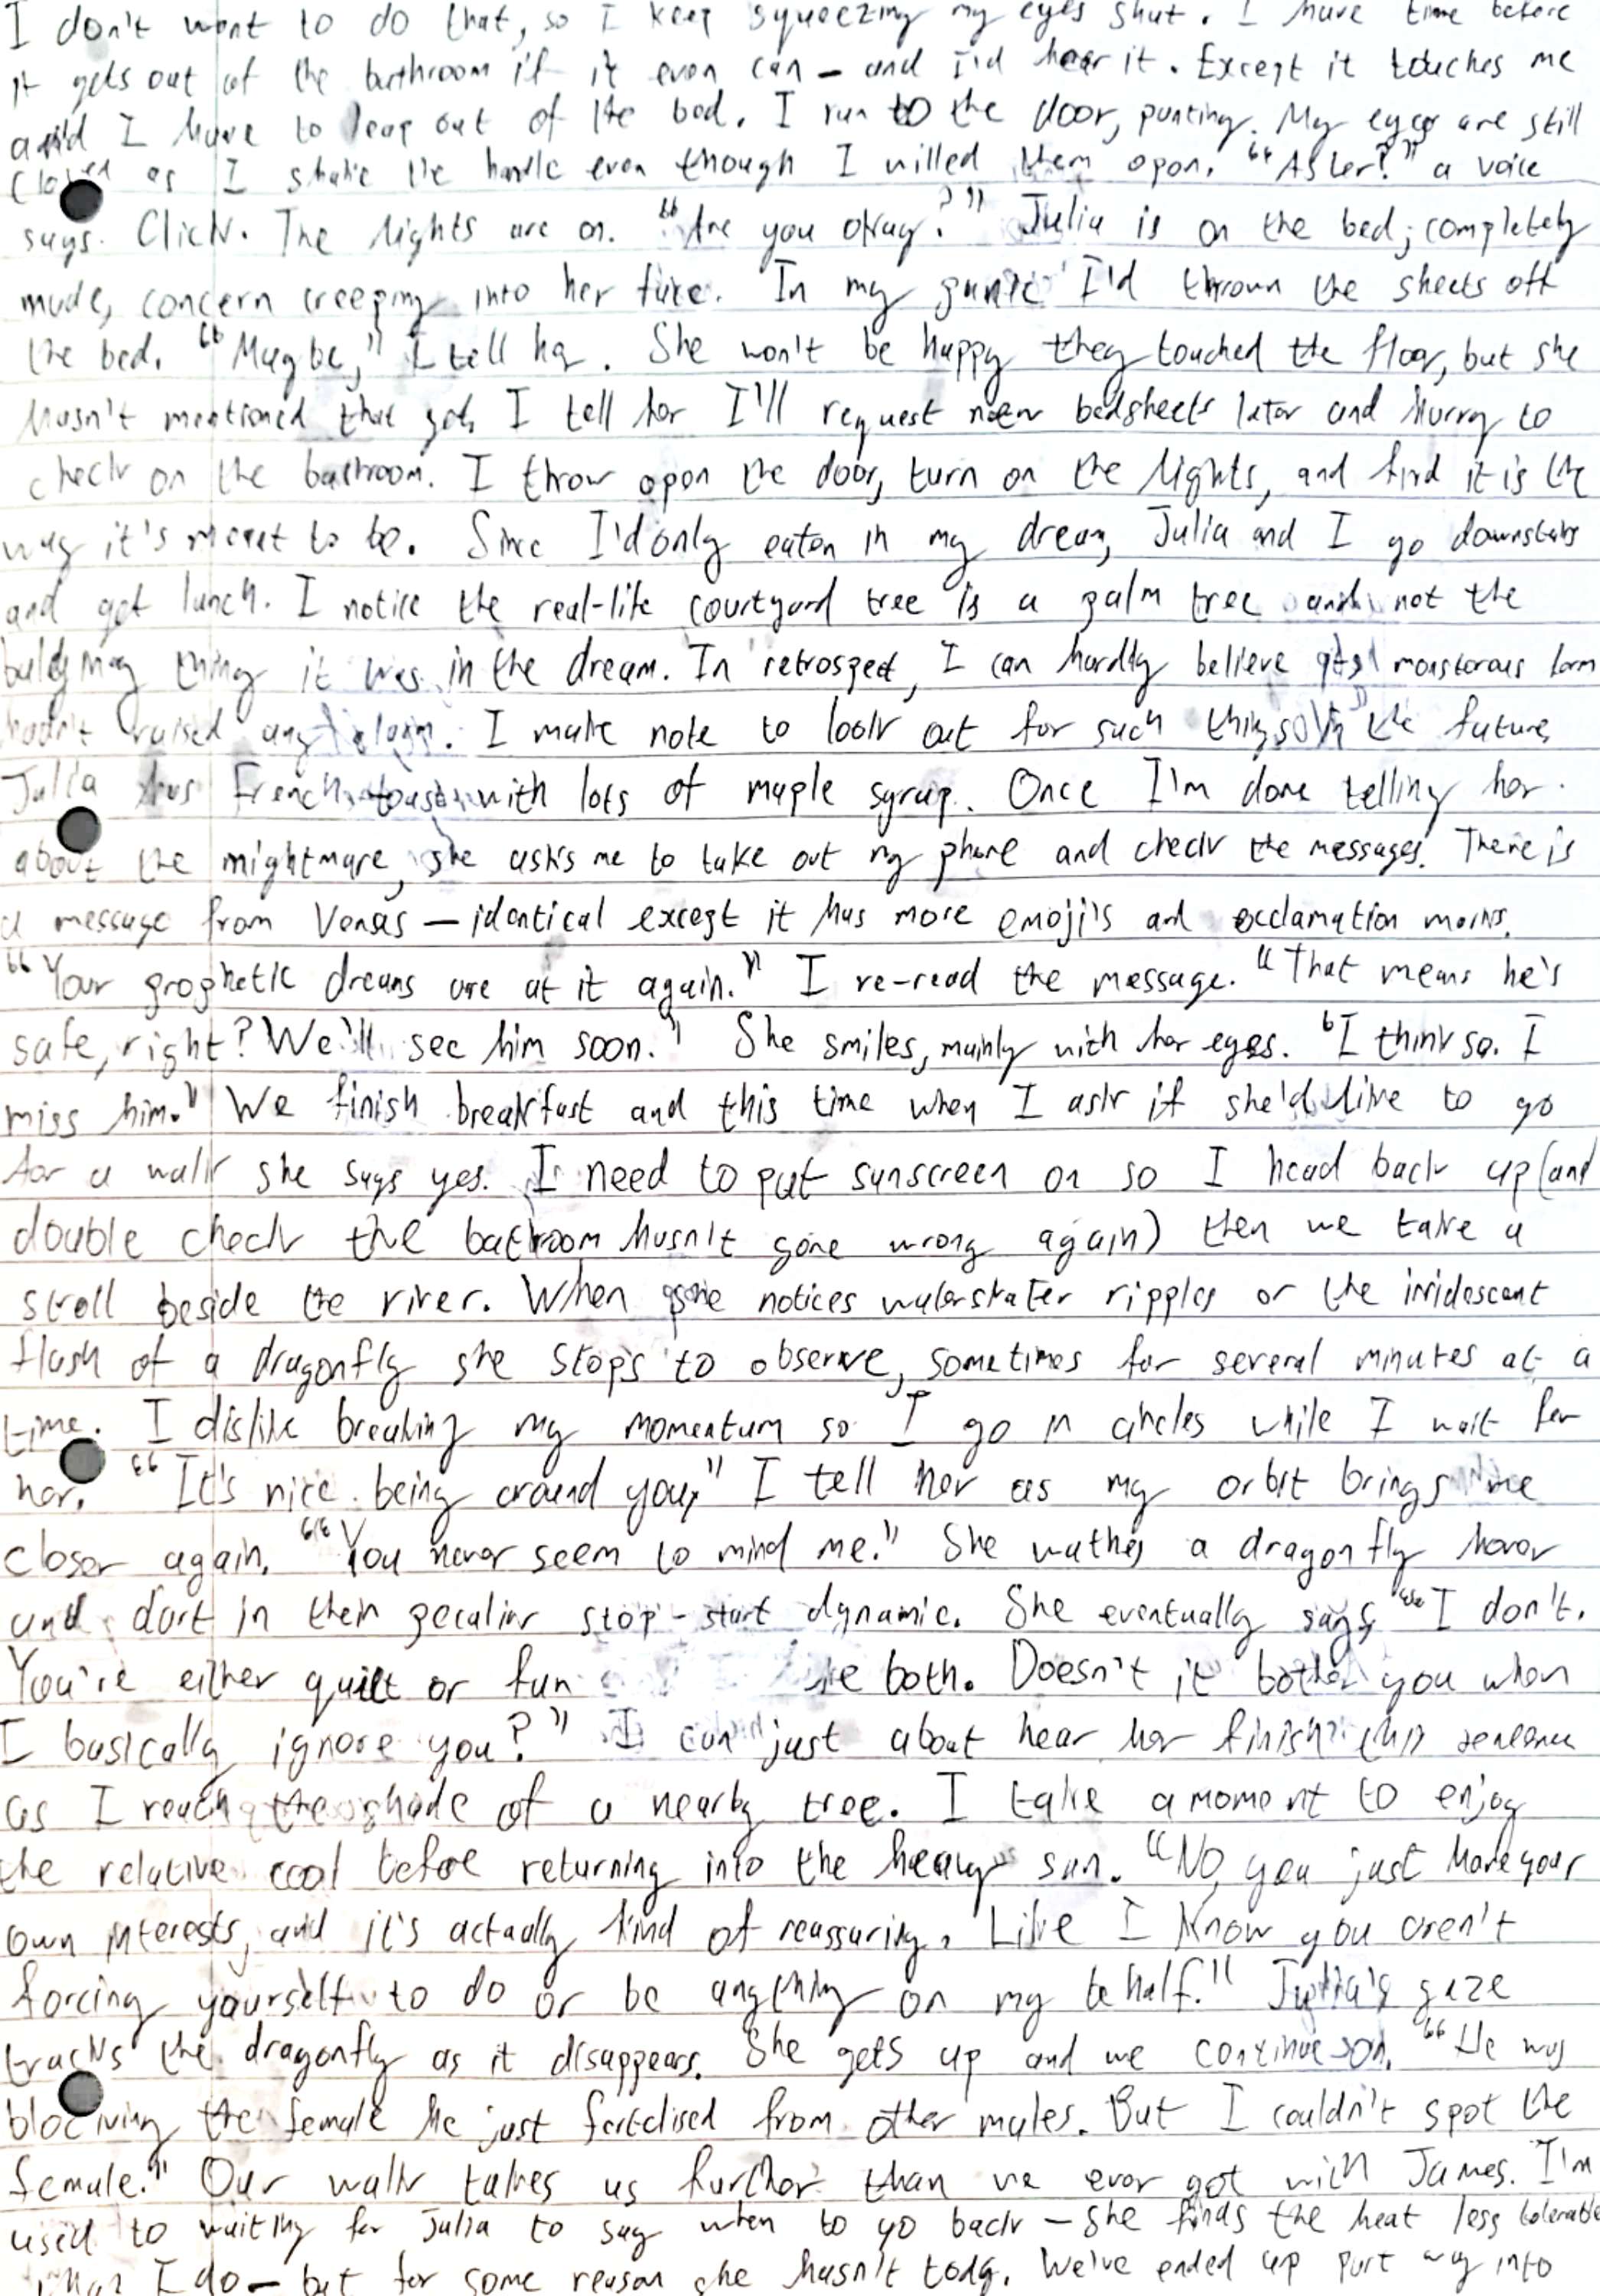 I don't want to do that, so I keep squeezing my eyes shut. I have time before
it gets out of the bathroom if it even can — and I'd hear it. Except it touches me
and I have to leap out of the bed. I run to the door, panting. My eyes are still
closed as I shake the handle even though I willed them open. "Aster?" a voice
says. Click. The lights are on. "Are you okay?" Julia is on the bed, completely
nude, concern creeping into her face. In my panic I'd thrown the sheets off
the bed. "Maybe," I tell her. She won't be happy they touched the floor, but she
hasn't mentioned that yet. I tell her I'll request new bedsheets later and hurry to
check on the bathroom. I throw open the door, turn on the lights, and find it is the
way it's meant to be. Since I'd only eaten in my dream, Julia and I go downstairs
and get lunch. I notice the real-life courtyard tree is a palm tree and not the
bulging thing it was in the dream. In retrospect, I can hardly believe its monstorous form
hadn't raised any alarm. I make note to look out for such things in the future.
Julia has French toast with lots of maple syrup. Once I'm done telling her
about the nightmare, she asks me to take out my phone and check the messages. There is
a message from Venas — identical except it has more emoji's and exclamation marks.
"Your prophetic dreams are at it again." I re-read the message. "That means he's
safe, right? We'll see him soon." She smiles, mainly with her eyes. "I think so. I
miss him." We finish breakfast and this time when I ask if she'd like to go
for a walk she says yes. I need to put sunscreen on so I head back up (and
double check the bathroom hasn't gone wrong again) then we take a
stroll beside the river. When she notices waterskater ripples or the irridescent
flash of a dragonfly she stops to observe, sometimes for several minutes at a
time. I dislike breaking my momentum so I go in circles while I wait for
her. "It's nice being around you," I tell her as my orbit brings me
closer again. "You never seem to mind me." She wathes a dragonfly hover
and dart in their peculiar stop-start dynamic. She eventually says, "I don't.
You're either quiet or fun both. Doesn't it bother you when
I basically ignore you?" I can just about hear her finish this sentence
as I reach the shade of a nearby tree. I take a moment to enjoy
the relative cool before returning into the heavy sun. "No, you just have your
own interests, and it's actually kind of reassuring. Like I know you aren't
forcing yourself to do or be anything on my behalf." Julia's gaze
tracks the dragonfly as it disappears. She gets up and we continue on. "He was
blocking the female he just fertelised from other males. But I couldn't spot the
female." Our walk takes us further than we ever got with James. I'm
used to waiting for Julia to say when to go back — she finds the heat less tolerable
than I do — but for some reason she hasn't today. We've ended up part way into